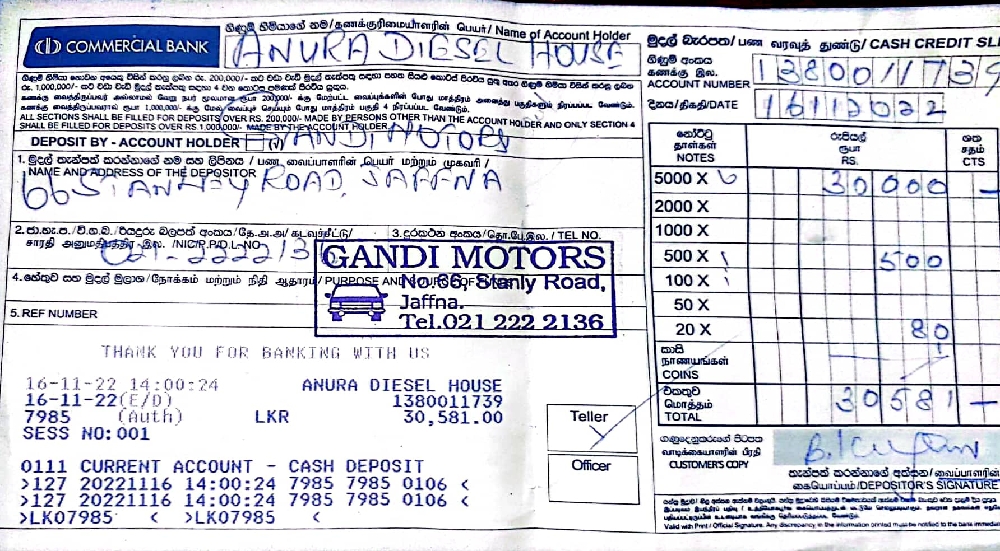 COMMERCIAL BANK
ගිණුම් හිමියාගේ නම/கணக்குரிமையாளரின் பெயர்/ Name of Account Holder
ANURA DIESEL HOUSE
ALL SECTIONS SHALL BE FILLED FOR DEPOSITS OVER RS. 200,000/- MADE BY PERSONS OTHER THAN THE ACCOUNT HOLDER AND ONLY SECTION 4
SHALL BE FILLED FOR DEPOSITS OVER RS 1,000,000/- MADE BY THE ACCOUNT HOLDER
DEPOSIT BY - ACCOUNT HOLDER (√)
GANDI MOTORS
1. මුදල් තැන්පත් කරන්නාගේ නම සහ ලිපිනය / பண வைப்பாளரின் பெயர் மற்றும் முகவரி /
NAME AND ADDRESS OF THE DEPOSITOR
66 STANLEY ROAD, JAFFNA
2. ජා.හැ.ප./வி.
/NIC/P.P/D.L-NO
3. දුරකථන අංකය/தொ.பே.இல. / TEL NO.
021-2222136
4. හේතුව සහ මුදල් මූලාශ්‍ර/நோக்கம் மற்றும் நிதி ஆதாரம்/ PURPOSE AND SOURCE OF
5. REF NUMBER
GANDI MOTORS
No. 66, Stanly Road,
Jaffna.
Tel.021 222 2136
THANK YOU FOR BANKING WITH US
16-11-22 14:00:24 ANURA DIESEL HOUSE
16-11-22(E/D) 1380011739
7985 (Auth) LKR 30,581.00
SESS NO:001
0111 CURRENT ACCOUNT - CASH DEPOSIT
>127 20221116 14:00:24 7985 7985 0106 <
>127 20221116 14:00:24 7985 7985 0106 <
>LK07985 < >LK07985 <
Teller
Officer
මුදල් බැරපත/பண வரவுத் துண்டு/ CASH CREDIT SLI
ගිණුම් අංකය
கணக்கு இல.
ACCOUNT NUMBER 1380011739
දිනය/திகதி/DATE 16112022
නෝට්ටු රුපියල් ශත
தாள்கள் ரூபா சதம்
NOTES RS. CTS
5000 X 6 30000 —
2000 X
1000 X
500 X 1 500
100 X
50 X
20 X 80
කාසි
நாணயங்கள்
COINS 1
එකතුව
மொத்தம்
TOTAL 30581 —
ගනුදෙනුකරුගේ පිටපත
வாடிக்கையாளரின் பிரதி
CUSTOMER'S COPY
තැන්පත් කරන්නාගේ අත්සන/வைப்பாளரின்
கையொப்பம்/DEPOSITOR'S SIGNATURE
Valid with Print / Official Signature. Any discrepancy in the information printed must be notified to the bank immediat